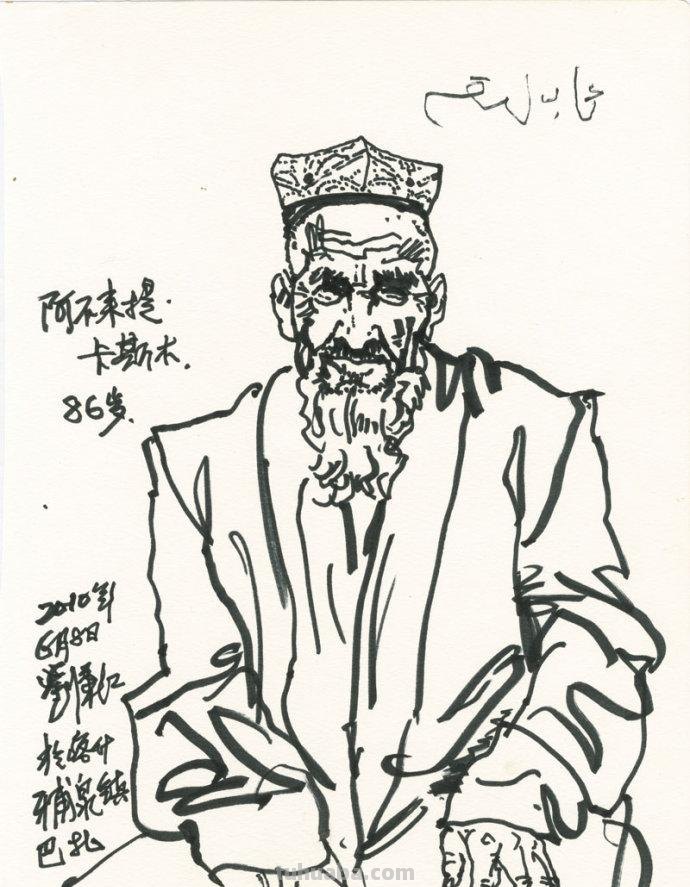 阿不来提·
卡斯木.
86岁.
2010年
6月8日
於喀什
泉鎮
巴扎
tuhuaba.com